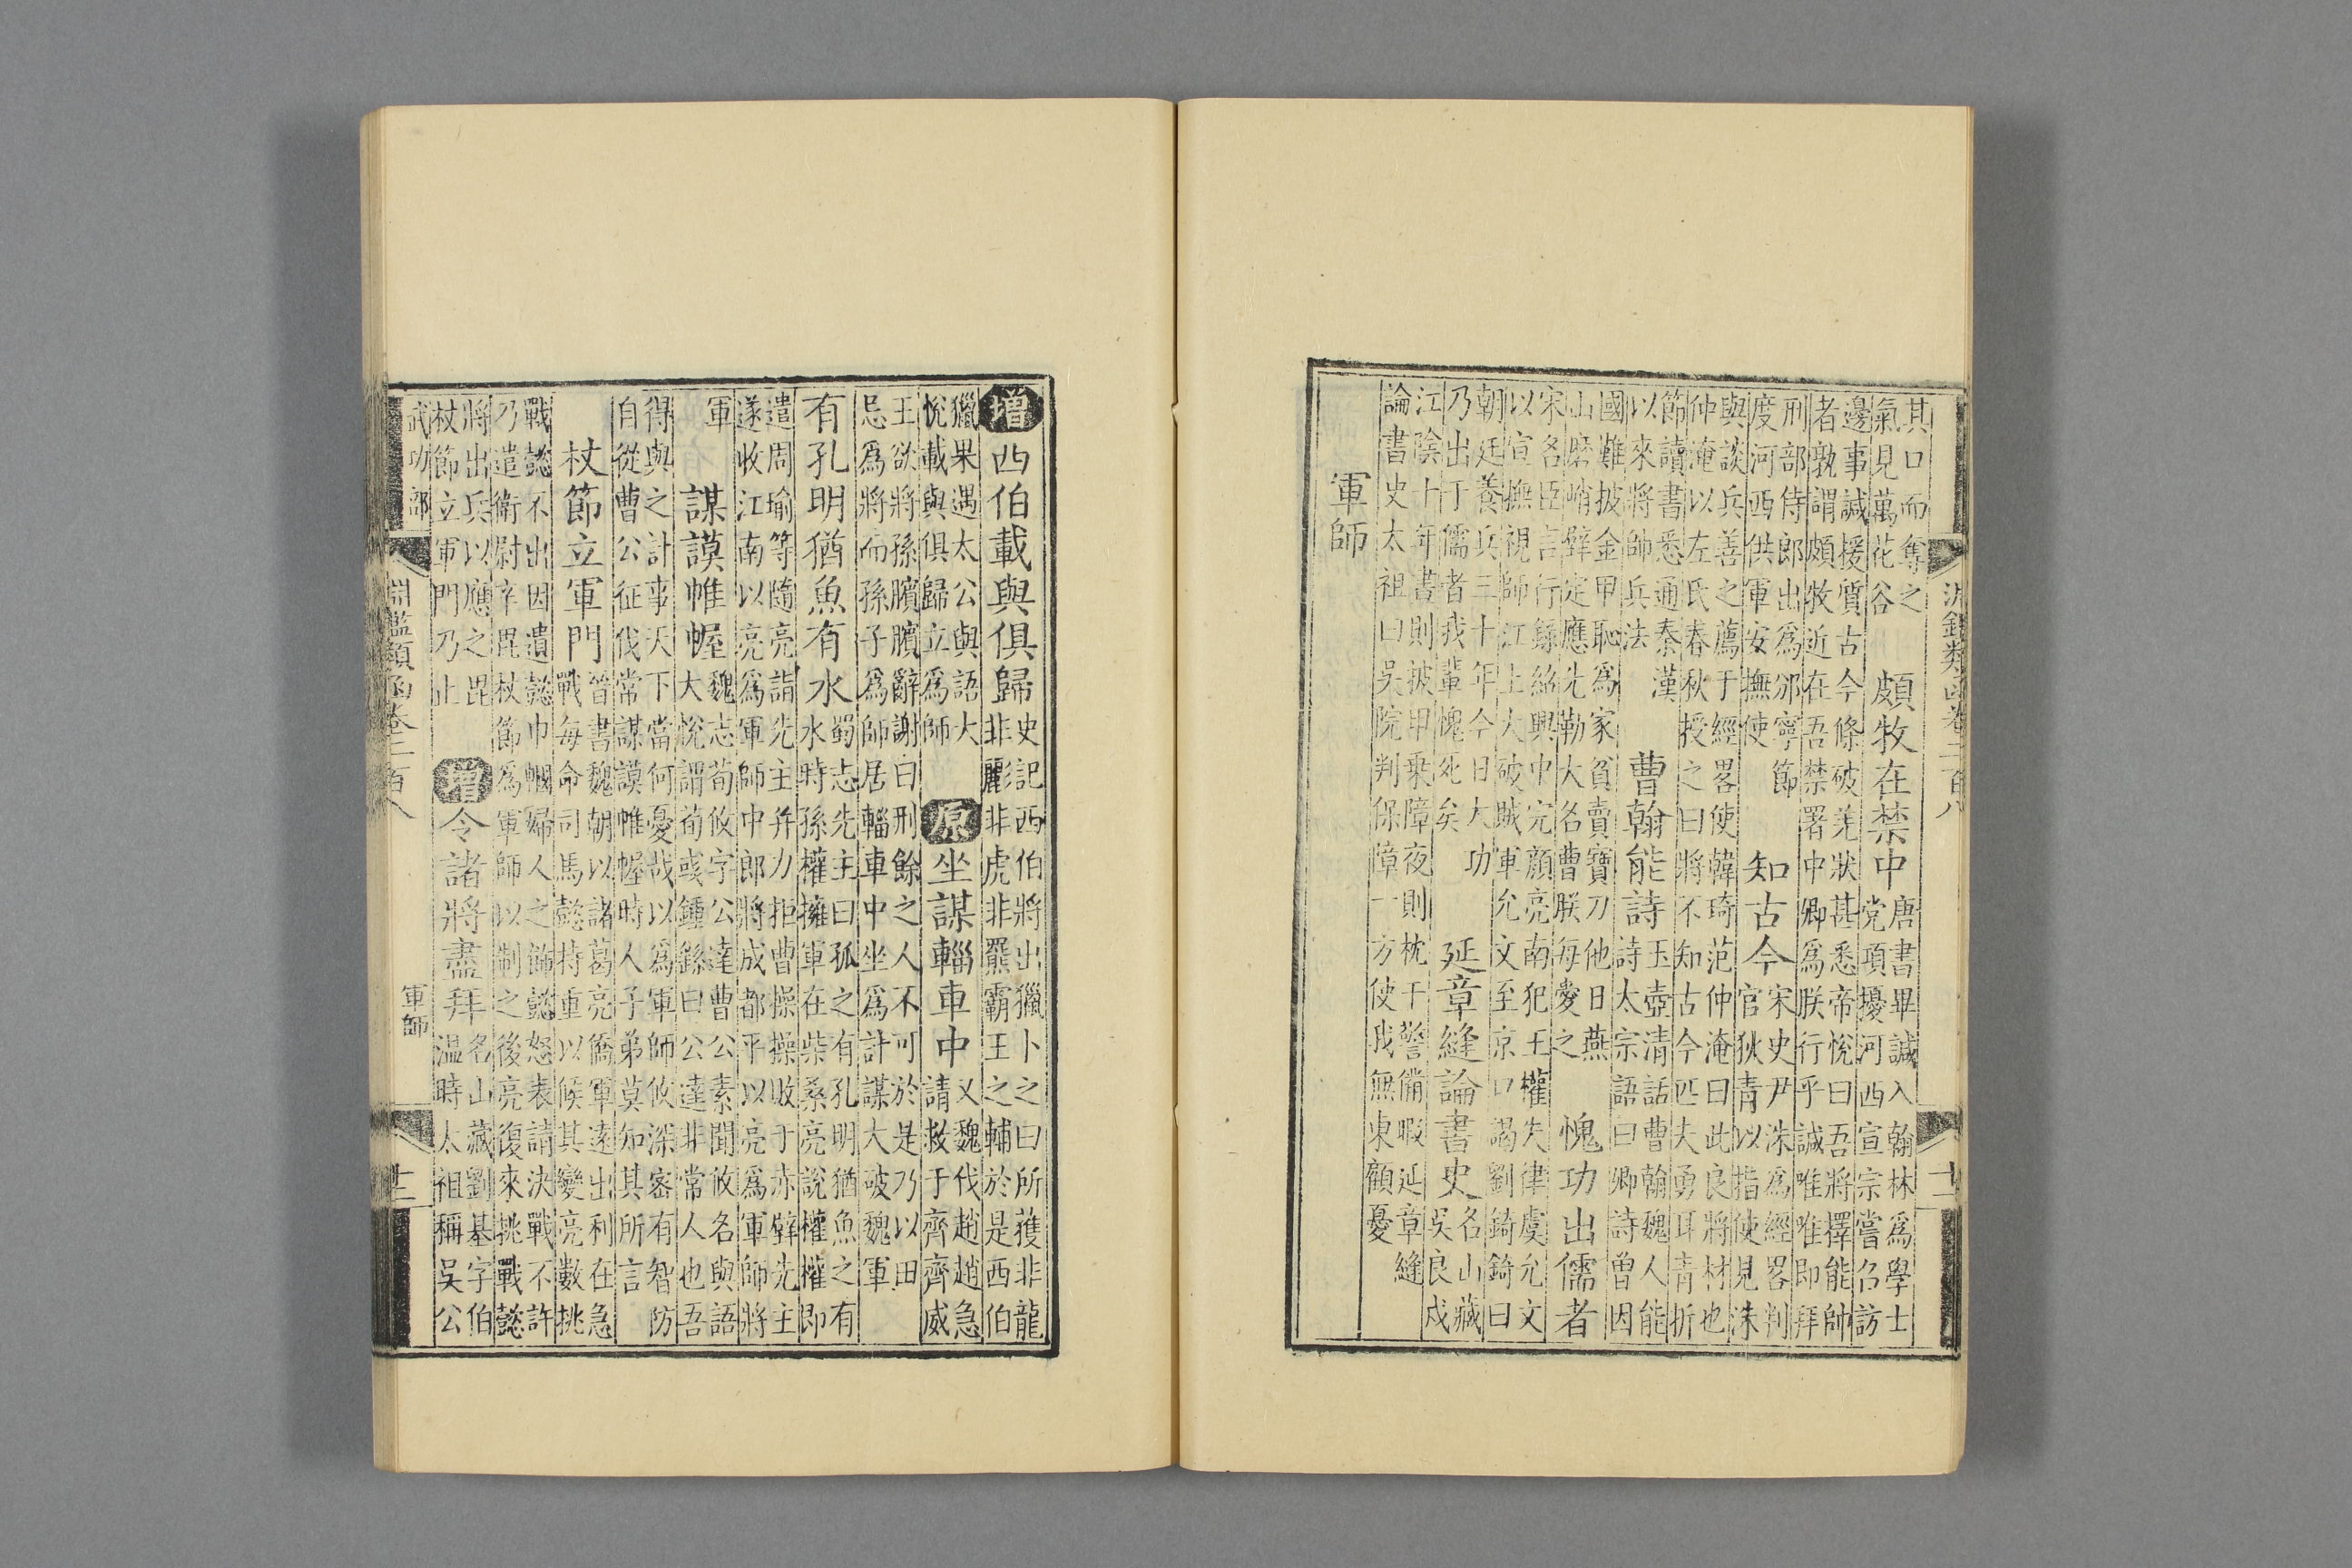 淵鑑類函卷二百八 十一
其口而奪之
氣見萬花谷
頗牧在禁中
唐書畢諴入翰林為學士
党項擾河西宣宗嘗召訪
邊事諴援質古今條破羌狀甚悉帝悅曰吾將擇能帥
者孰謂頗牧近在吾禁署中卿為朕行乎諴唯唯即拜
刑部侍郎出為邠寧節
度河西供軍安撫使
知古今
宋史尹洙為經畧判
官狄青以指使見洙
與談兵善之薦于經畧使韓琦范仲淹曰此良將材也
仲淹以左氏春秋授之曰將不知古今匹夫勇耳青折
節讀書悉通秦漢
以來將帥兵法
曹翰能詩
玉壺清話曹翰魏人能
詩太宗語曰卿詩曾因
國難披金甲恥為家貧賣寶刀他日燕
山磨峭壁定應先勒大名曹朕每愛之
愧功出儒者
宋名臣言行錄紹興中完顏亮南犯王權失律虞允文
以宣撫視師江上大破賊軍允文至京口謁劉錡錡曰
朝廷養兵三十年今日大功
乃出于儒者我輩愧死矣
延章縫論書史
名山藏
吳良戍
江陰十年晝則披甲乗障夜則枕干警備暇延章縫
論書史太祖曰吳院判保障一方使我無東顧憂
軍師
增 西伯載與俱歸
史記西伯將出獵卜之曰所獲非龍
非彲非虎非羆霸王之輔於是西伯
獵果遇太公與語大
悅載與俱歸立為師
原 坐謀輜車中
又魏伐趙趙急
請救于齊齊威
王欲將孫臏臏辭謝曰刑餘之人不可於是乃以田
忌為將而孫子為師居輜車中坐為計謀大破魏軍
有孔明猶魚有水
蜀志先主曰孤之有孔明猶魚之有
水時孫權擁軍在柴桑亮說權權即
遣周瑜等隨亮詣先主并力拒曹操操敗于赤壁先主
遂收江南以亮為軍師中郎將成都平以亮為軍師將
軍
謀謨帷幄
魏志荀攸字公達曹公素聞攸名與語
大悅謂荀彧鍾繇曰公達非常人也吾
得與之計事天下當何憂哉以為軍師攸深密有智防
自從曹公征伐常謀謨帷幄時人子弟莫知其所言
杖節立軍門
晉書魏朝以諸葛亮僑軍遠出利在急
戰每命司馬懿持重以候其變亮數挑
戰懿不出因遺懿巾幗婦人之飾懿怒表請決戰不許
乃遣衛尉辛毘杖節為軍師以制之後亮復來挑戰懿
將出兵以應之毘
杖節立軍門乃止
增 令諸將盡拜
名山藏劉基字伯
温時太祖稱吳公
武功部 淵鑑類函卷二百八 軍師 十二